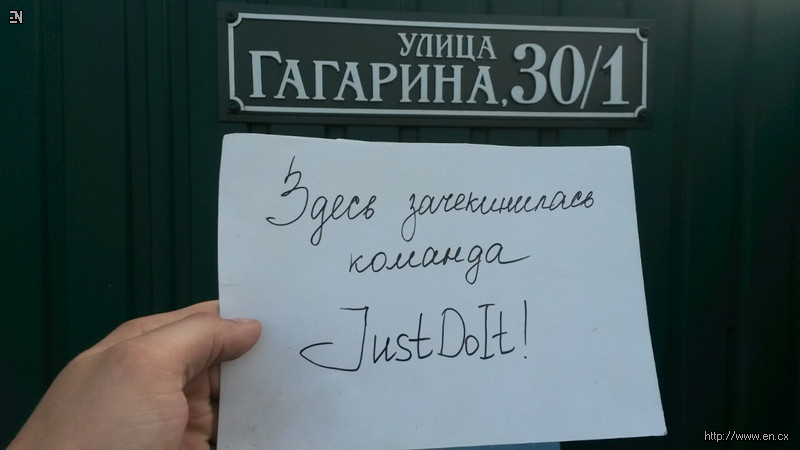 EN
УЛИЦА
ГАГАРИНА, 30/1
Здесь зачекинилась
команда
JustDoIt!
http://www.en.cx